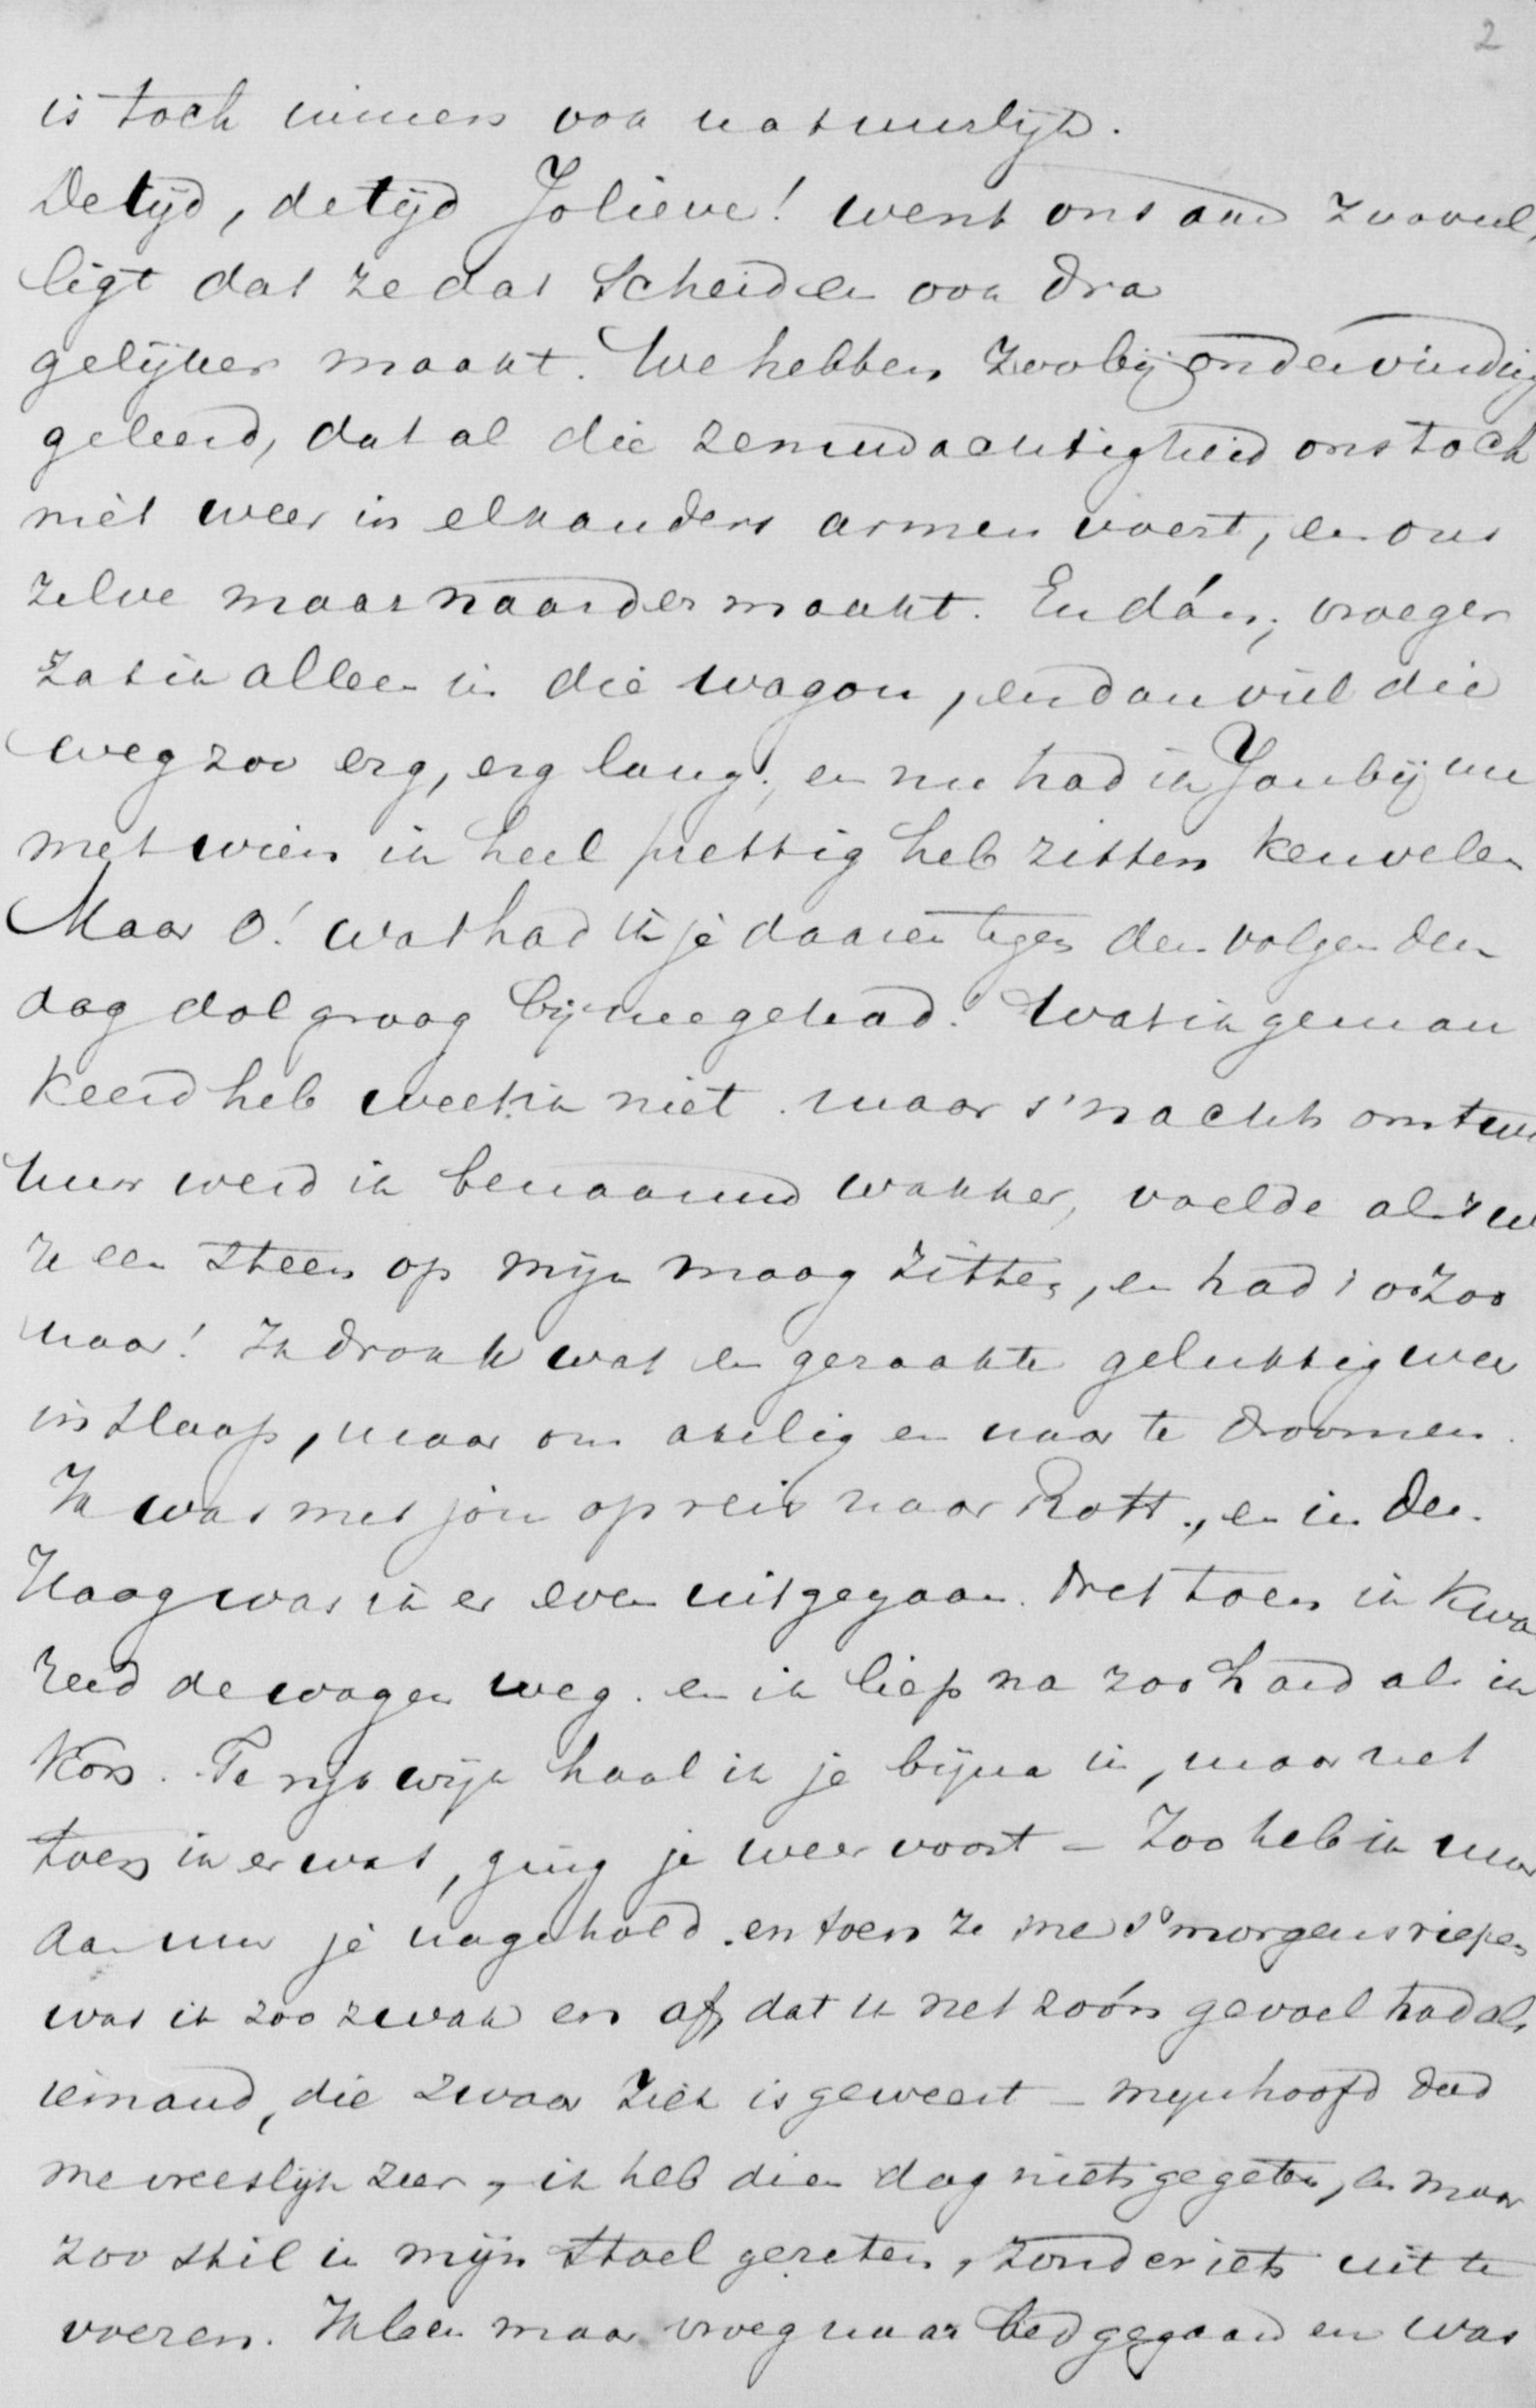 2
is toch immers ook natuurlijk.
De tijd, de tijd Jolieve! went ons aan zooveel,
ligt dat ze dat scheiden ook dra
gelijker maakt. We hebben zoo bij ondervinding
geleerd, dat al die zenuwachtigheid ons toch
niet weer in elkanders armen voert, en ons
zelve maar naarder maakt. En dán, vroeger
zat ik alleen in die wagon, en dan viel die
weg zoo erg, erg lang; en nu had ik Jou bij me
met wien ik heel prettig heb zitten keuvelen
Maar o! wat had ik je daarentegen den volgenden
dag dolgraag bij me gehad! Wat ik geman
keerd heb weet ik niet. maar s'nachts om twe
uur werd ik benaauwd wakker, voelde als
ze een steen op mijn maag zitten, en had 't o zoo
naar! Ik dronk wat en geraakte gelukkig weer
in slaap, maar om akelig en naar te droomen.
Ik was met jou op reis naar Rott., en in den
Haag was ik er even uitgegaan. Net toen ik kwa
reed de wagen weg. en ik liep na zoo hard als ik
kon. Te Rijswijk haal ik je bijna in, maar net
toen ik er was, ging je weer voort – Zoo heb ik uur
aan uur je nagehold. en toen ze me s'morgens riepen
was ik zoo zwak en af, dat ik net zoó'n gevoel had als
iemand, die zwaar ziek is geweest – mijn hoofd deed
me vreeslijk zeer, ik heb dien dag niets gegeten, en maar
zoo stil in mijn stoel gezeten, zonder iets uit te
voeren. Ik ben maar vroeg naar bed gegaan en was